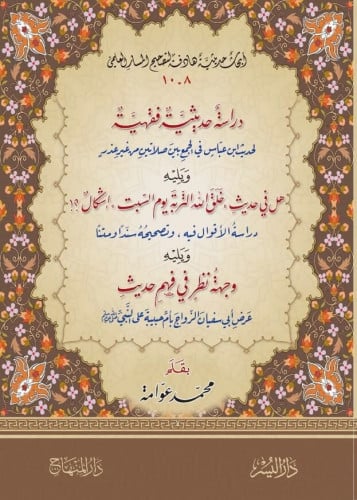 أبحاث حديثية هادفة لتصحيح المسار العلمي
٨ - ١٠
دراسة حديثية فقهية
لحديث ابن عباس في الجمع بين صلاتين من غير عذر
ويليه
هل في حديث «خلق الله التربة يوم السبت» إشكال ؟!
دراسة الأقوال فيه، وتصحيحه سندا ومتنا
ويليه
وجهة نظر في فهم حديث
عرض أبي سفيان الزواج بأم حبيبة على النبي ﷺ
بقلم
محمد عوامة
دار اليسر
دار المنهاج